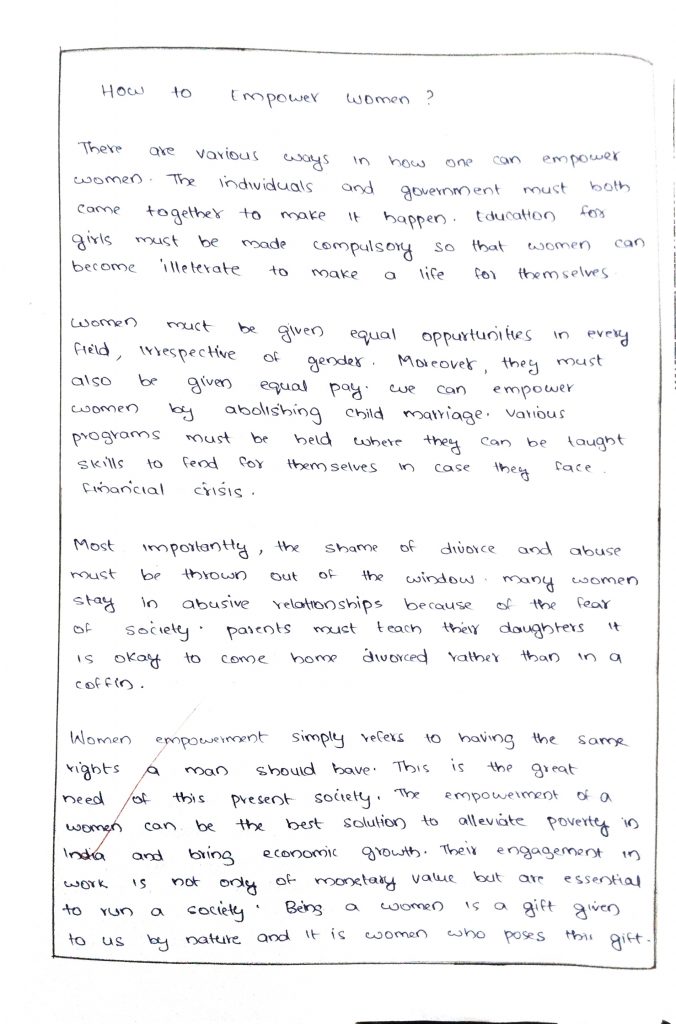 How to Empower women ?
There are various ways in how one can empower
women. The individuals and government must both
came together to make it happen. Education for
girls must be made compulsory so that women can
become illeterate to make a life for themselves.
Women must be given equal oppurtunities in every
field, irrespective of gender. Moreover, they must
also be given equal pay. we can empower
women by abolishing child marriage. Various
programs must be held where they can be taught
skills to fend for themselves in case they face.
financial crisis.
Most importantly, the shame of divorce and abuse
must be thrown out of the window. many women
stay in abusive relationships because of the fear
of society. parents must teach their daughters it
is okay to come home divorced rather than in a
coffin.
Women empowerment simply refers to having the same
rights a man should have. This is the great
need of this present society. The empowerment of a
women can be the best solution to alleviate poverty in
India and bring economic growth. Their engagement in
work is not only of monetary value but are essential
to run a society. Being a women is a gift given
to us by nature and it is women who poses this gift.